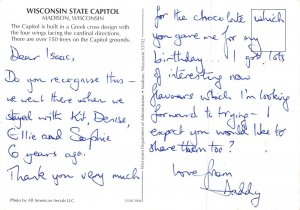 WISCONSIN STATE CAPITOL
MADISON, WISCONSIN
The Capitol is built in a Greek cross design with
the four wings facing the cardinal directions.
There are over 150 trees on the Capitol grounds.
Dear Isaac,
Do you recognise this -
we went there when we
stayed with Kit, Denise,
Ellie and Sophie
6 years ago.
Thank you very much
Photo by All American Aerials LLC
for the chocolate which
you gave me for my
birthday... I got lots
of interesting new
flavours which I'm looking
forward to trying - I
expect you would like to
share them too?
Love from
Daddy